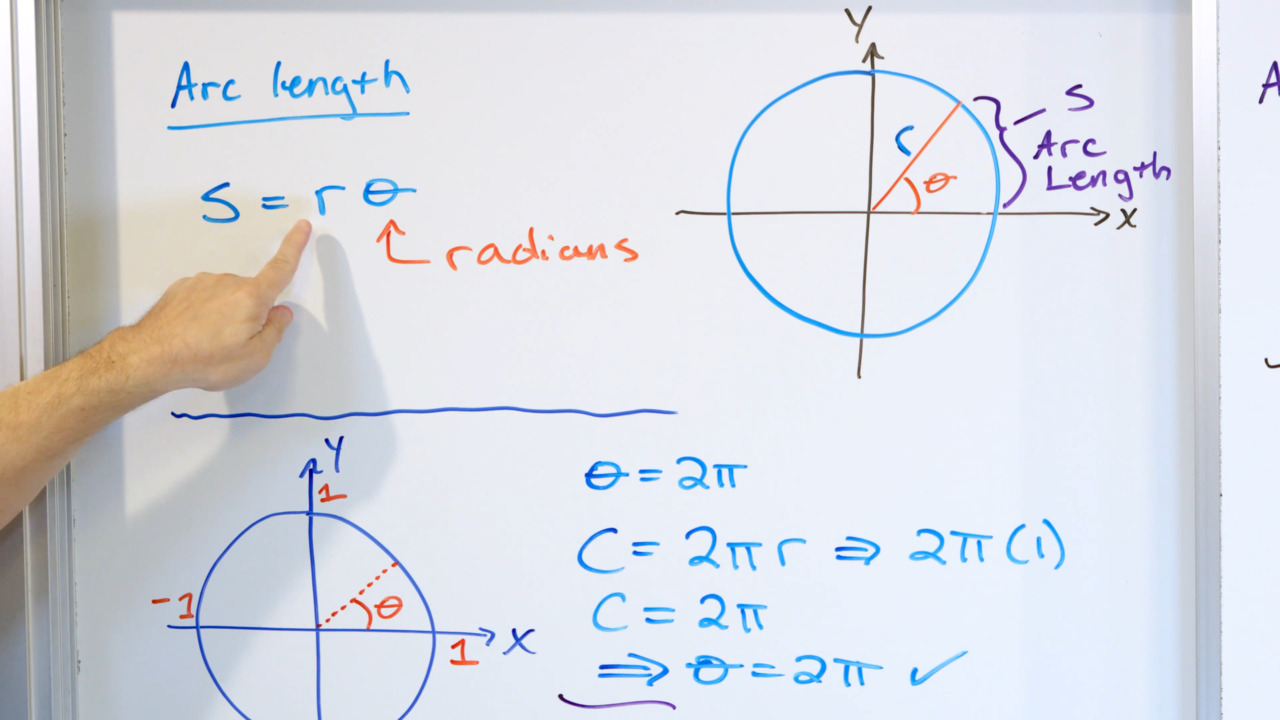 Arc length
S = r θ
radians
Y
r
θ
S
Arc
Length
X
Y
1
-1
θ
1
X
θ = 2π
C = 2πr ⇒ 2π(1)
C = 2π
⇒ θ = 2π ✓
A